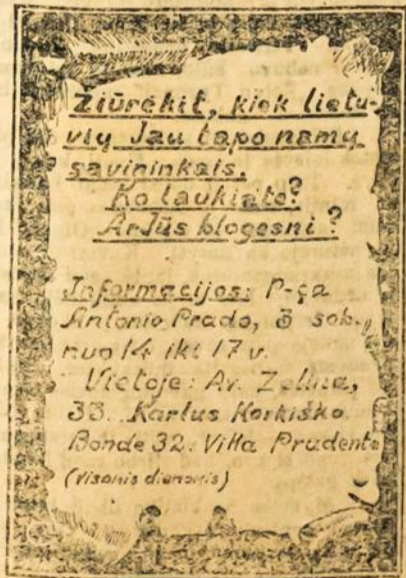 Žiūrėkit, kiek lietu-
vių Jau tapo namų
savininkais.
Ko laukiate?
Ar Jūs blogesni?
Informacijos: P-ça
Antonio Prado, 3 sob.,
nuo 14 iki 17 v.
Vietoje: Av. Zelina,
33. Karlus Korkiško
Bonde 32: Villa Prudente
(visomis dienomis)